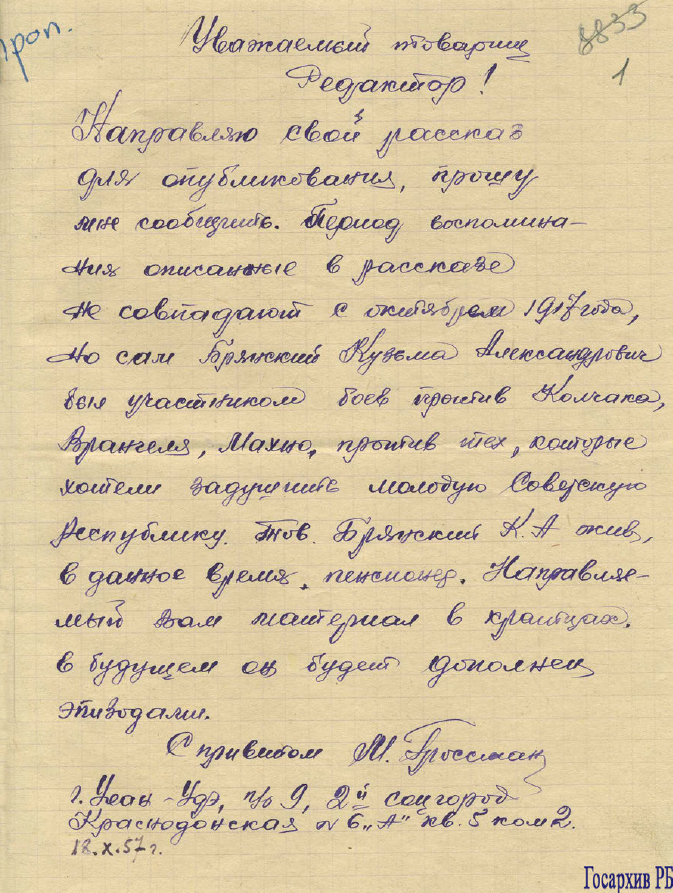 Проп.
8833
1
Уважаемый товарищ
Редактор!
Направляю свой рассказ
для опубликования, прошу
мне сообщить. Период воспомина-
ния описанные в рассказе
не совпадают с октябрем 1917 года,
но сам Брянский Кузьма Александрович
был участником боев против Колчака,
Врангеля, Махно, против тех, которые
хотели задушить молодую Советскую
Республику. Тов. Брянский К.А жив,
в данное время, пенсионер. Направляе-
мый Вам материал в кратцах.
в будущем он будет дополнен
эпизодами.
С приветом М. Гроссман
г. Улан-Удэ, п/о 9, 2й соцгород
Краснодонская № 6 „А" кв. 5 ком 2.
18.X.57 г.
Госархив РБ